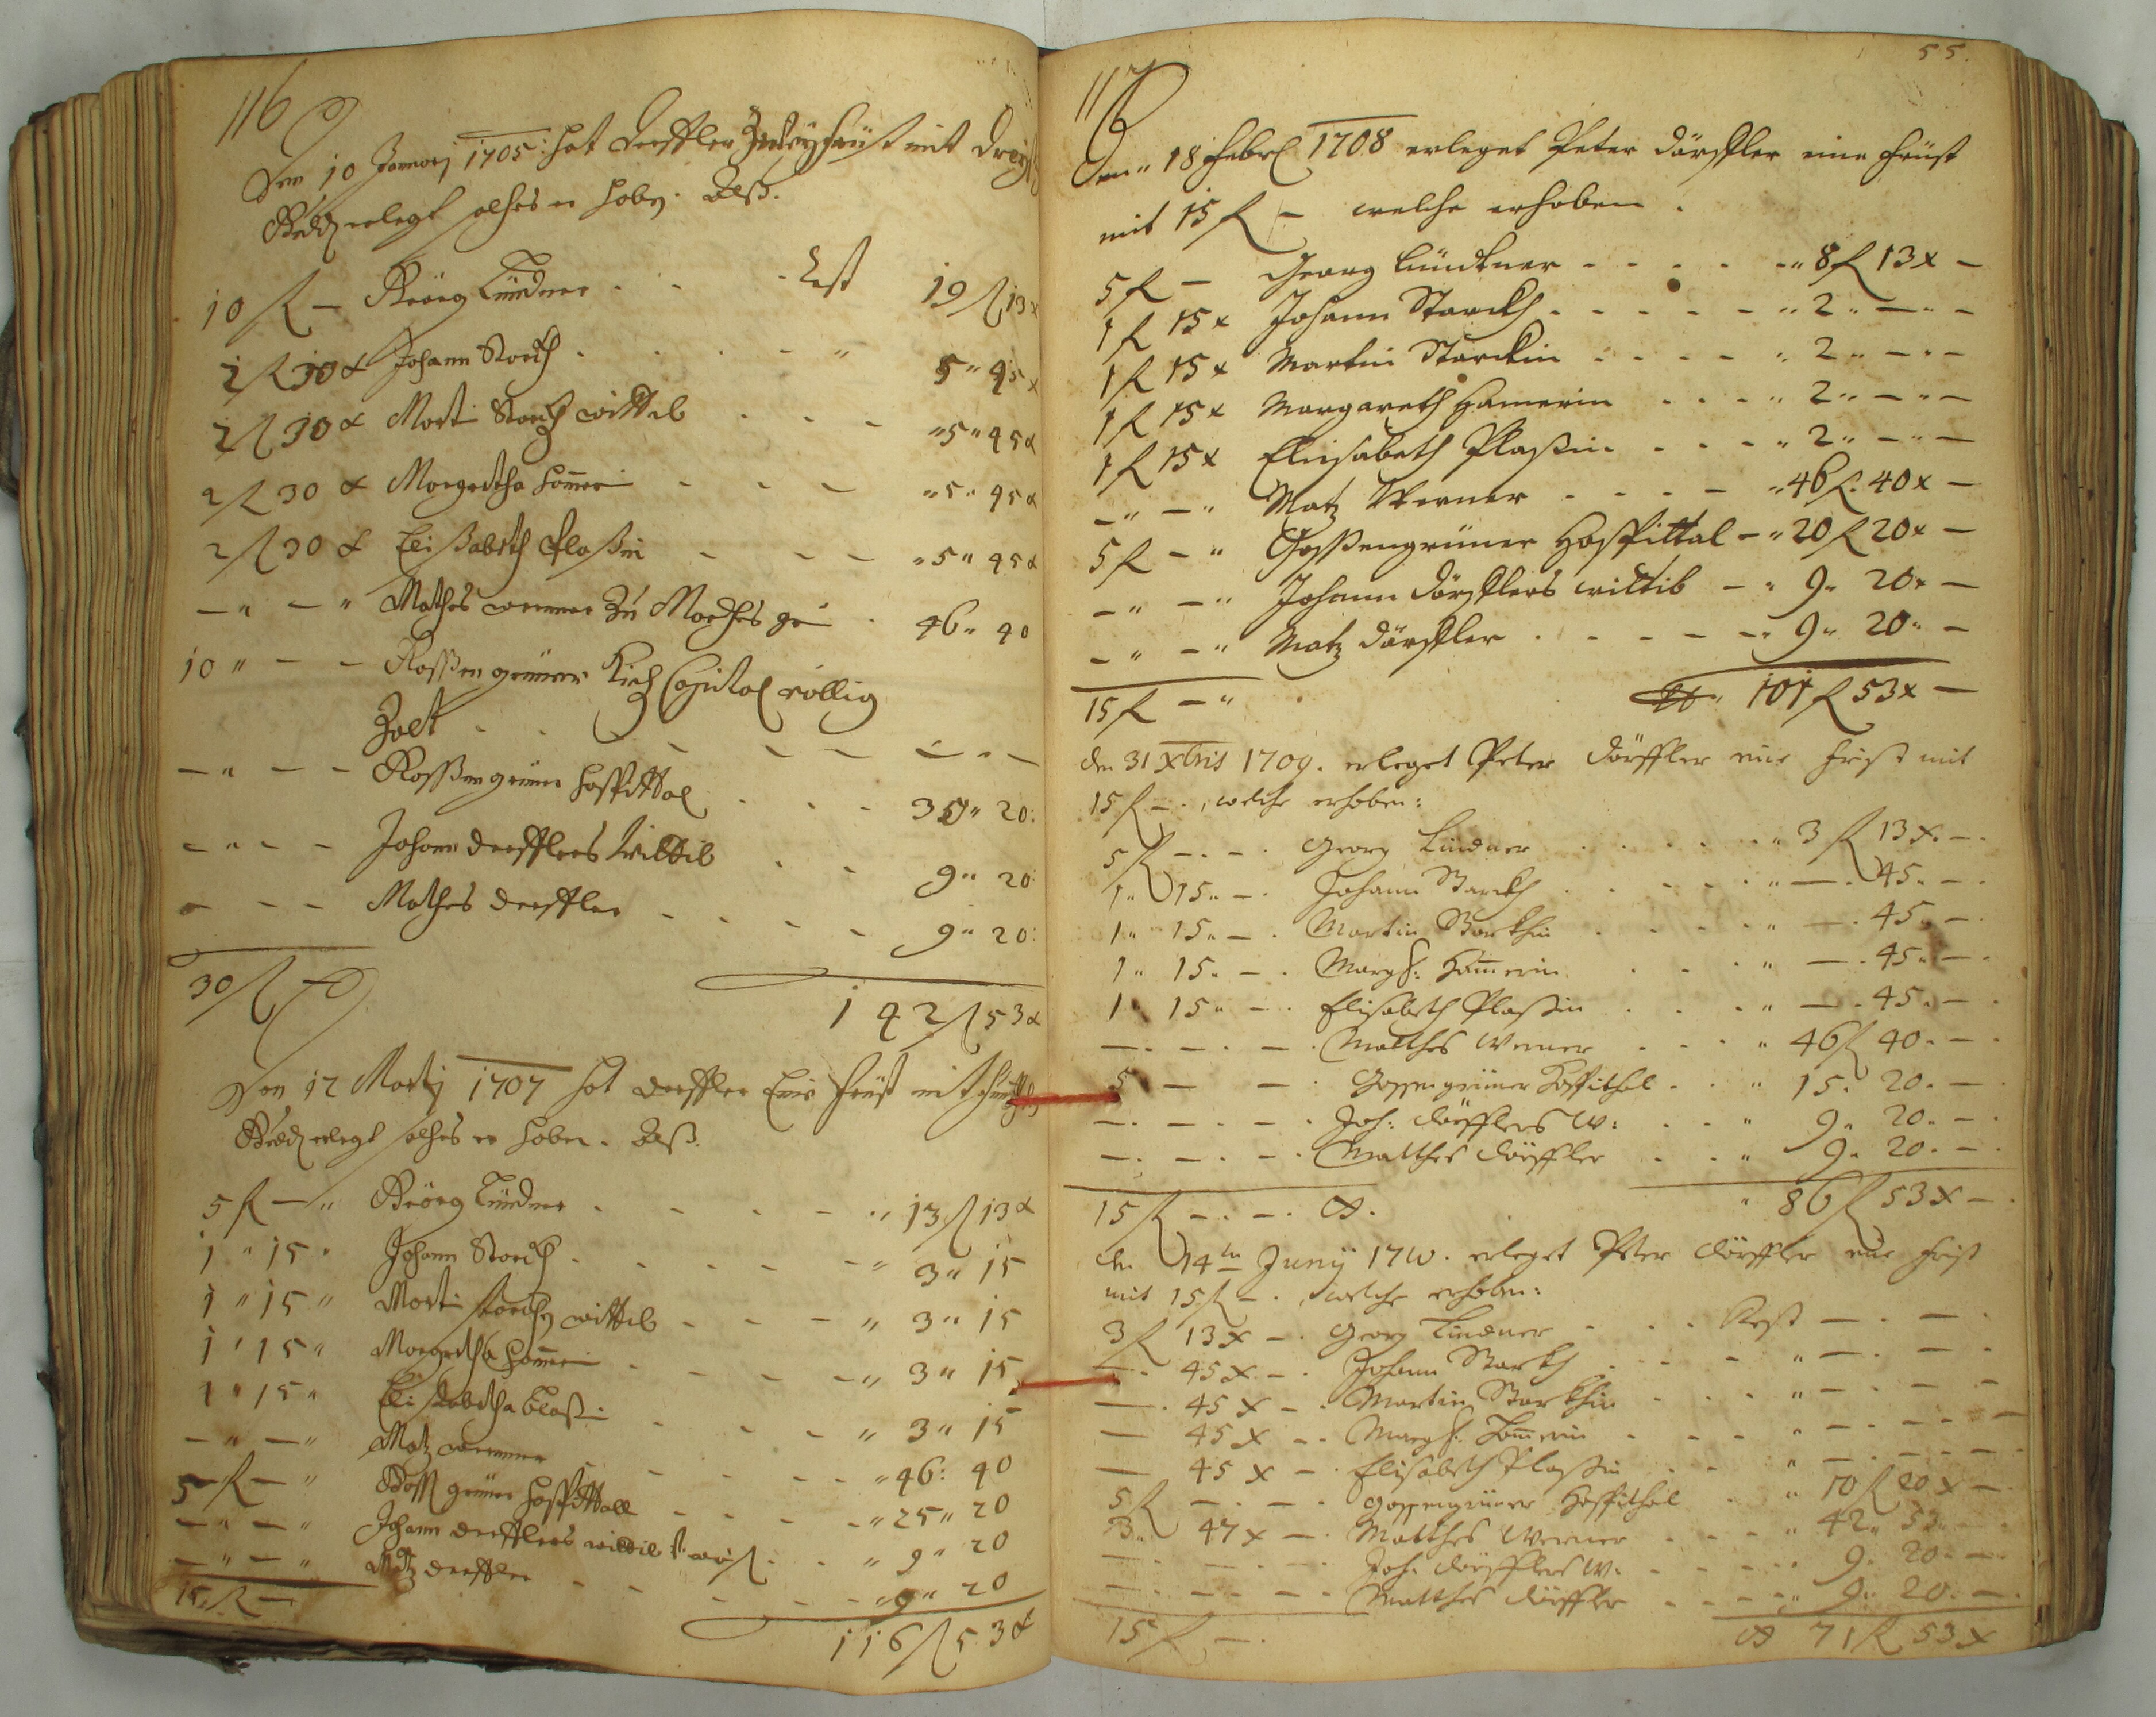 116
Den 10 Januarj 1705: hat Dersfler Zweÿ früst mit Dreÿß
erlegt solches er hoben. Alß.
10 fl — Geörg Lindner . . . Rest 19 fl 13 x
2 fl 30 x Johann Storch . . . „ 5 „ 45 x
2 fl 30 x Marti Storch wittib . . . „ 5 „ 45 x
2 fl 30 x Margretha Hom̄eri - - - „ 5 „ 45 x
2 fl 30 x Elißabeth Plaßin - - - „ 5 „ 45 x
— „ — „ Mathes werner Zu . 46 „ 40
10 „ — — Gossengrüner Capital völlig
Zalt . . — — — „ —
— „ — — Gossengrüner Hospittal . . . 35 „ 20 :
— „ — — Johann Dersflers Wittib . . 9 „ 20 :
— — — Mathes Dersfler - - - - 9 „ 20 :
30 fl 142 fl 53 x
Den 12 Martj 1707 hat Dersfler Eine früst mit
erlegt solches er hoben. Alß.
5 fl — „ Geörg Lindner . - - - „ 13 fl 13 x
1 „ 15 „ Johann Storch . - - - „ 3 „ 15
1 „ 15 „ Marti storchy wittib - - - „ 3 „ 15
1 „ 15 „ Margretha Hom̄eri - - - „ 3 „ 15
1 „ 15 „ Elisabetha blaßi - - - „ 3 „ 15
— „ — „ Matz werner - - - - „ 46 : 40
5 fl — „ Goss grüner Hospittall - - - „ 25 „ 20
— „ — „ Johann Dersflers wittib . . „ 9 „ 20
— „ — „ Matz Dersfler - - - - „ 9 „ 20
15 fl — 116 fl 53 x
55.
117
Den „ 18 Febrl 1708 erleget Peter Dörfler eine früst
mit 15 fl — welche erhoben .
5 fl — Georg Lindtner - - - - - „ 8 fl 13 x —
1 fl 15 x Johann Starckh . - - - - „ 2 „ — „ —
1 fl 15 x Martin Starckin . - - - „ 2 „ — „ —
1 fl 15 x Margareth Hamerin . - - „ 2 „ — „ —
1 fl 15 x Elisabeth Plaßin . - - - „ 2 „ — „ —
— „ — „ Matz Werner . - - - „ 46 fl 40 x —
5 fl — „ Gossengrüner Hospittal — „ 20 fl 20 x —
— „ — „ Johann Dörflers wittib — „ 9 „ 20 „ —
— „ — „ Matz Dörfler . - - - - „ 9 „ 20 „ —
15 fl — „ 101 fl 53 x —
den 31 Xbris 1709. erleget Peter Dörffler eine frist mit
15 fl —. , welche erhoben:
5 fl —. —. Georg Lindner . . . . . „ 3 fl 13 x. —.
1 „ 15 „ —. Johann Starckh . . . . . „ —. 45. —.
1 „ 15 „ —. Martin Storkhin . . . . „ —. 45. —.
1 „ 15 „ —. Margh: Ham̄erin . . . „ —. 45. —.
1 „ 15 „ —. Elisabeth Plaßin . . . „ —. 45. —.
—. —. —. Matthes Werner . . . „ 46 fl 40. —.
5 — —. Gossengrüner Hospithal . . „ 15. 20. —.
—. —. —. Joh: Dörfflers W: . . „ 9. 20. —.
—. —. —. Matthes Dörffler . . „ 9. 20. —.
15 fl —. —. „ 86 fl 53 x —.
den 14tn Junÿ 1710. erleget Peter Dörffler eine frist
mit 15 fl —. , welche erhoben:
3 fl 13 x —. Georg Lindner . . . Rest —. —.
—. 45 x —. Johann Starkh . . . - „ —. - —
—. 45 x —. Martin Storkhin . . . „ —. - —
— 45 x —. Margh: Hom̄erin . . . „ —. - —
— 45 x —. Elisabeth Plaßin . . . „ —. - —
5 fl —. —. Gossengrüner Hospithal . „ 10 fl 20 x —.
3 „ 47 x —. Matthes Werner . - - „ 42 „ 53 „ —
—. — —. Joh: Dörfflers W: . - - - 9. 20. —.
—. — —. Matthes Dörffler . - - - „ 9. 20. —.
15 fl —. 71 fl 53 x